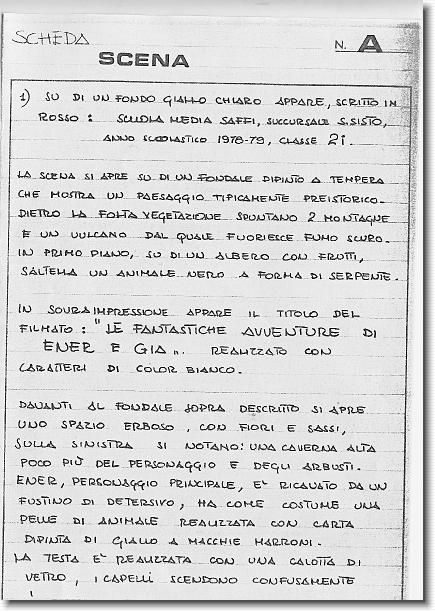 SCHEDA
N. A
SCENA
1) SU DI UN FONDO GIALLO CHIARO APPARE, SCRITTO IN
ROSSO: SCUOLA MEDIA SAFFI, SUCCURSALE S.SISTO,
ANNO SCOLASTICO 1978-79, CLASSE 2i.
LA SCENA SI APRE SU DI UN FONDALE DIPINTO A TEMPERA
CHE MOSTRA UN PAESAGGIO TIPICAMENTE PREISTORICO.
DIETRO LA FOLTA VEGETAZIONE SPUNTANO 2 MONTAGNE
E UN VULCANO DAL QUALE FUORIESCE FUMO SCURO.
IN PRIMO PIANO, SU DI UN ALBERO CON FRUTTI,
SALTELLA UN ANIMALE NERO A FORMA DI SERPENTE.
IN SOVRAIMPRESSIONE APPARE IL TITOLO DEL
FILMATO: "LE FANTASTICHE AVVENTURE DI
ENER E GIA". REALIZZATO CON
CARATTERI DI COLOR BIANCO.
DAVANTI AL FONDALE SOPRA DESCRITTO SI APRE
UNO SPAZIO ERBOSO, CON FIORI E SASSI,
SULLA SINISTRA SI NOTANO: UNA CAVERNA ALTA
POCO PIÙ DEL PERSONAGGIO E DEGLI ARBUSTI.
ENER, PERSONAGGIO PRINCIPALE, E' RICAVATO DA UN
FUSTINO DI DETERSIVO, HA COME COSTUME UNA
PELLE DI ANIMALE REALIZZATA CON CARTA
DIPINTA DI GIALLO A MACCHIE MARRONI.
LA TESTA E' REALIZZATA CON UNA CALOTTA DI
VETRO, I CAPELLI SCENDONO CONFUSAMENTE